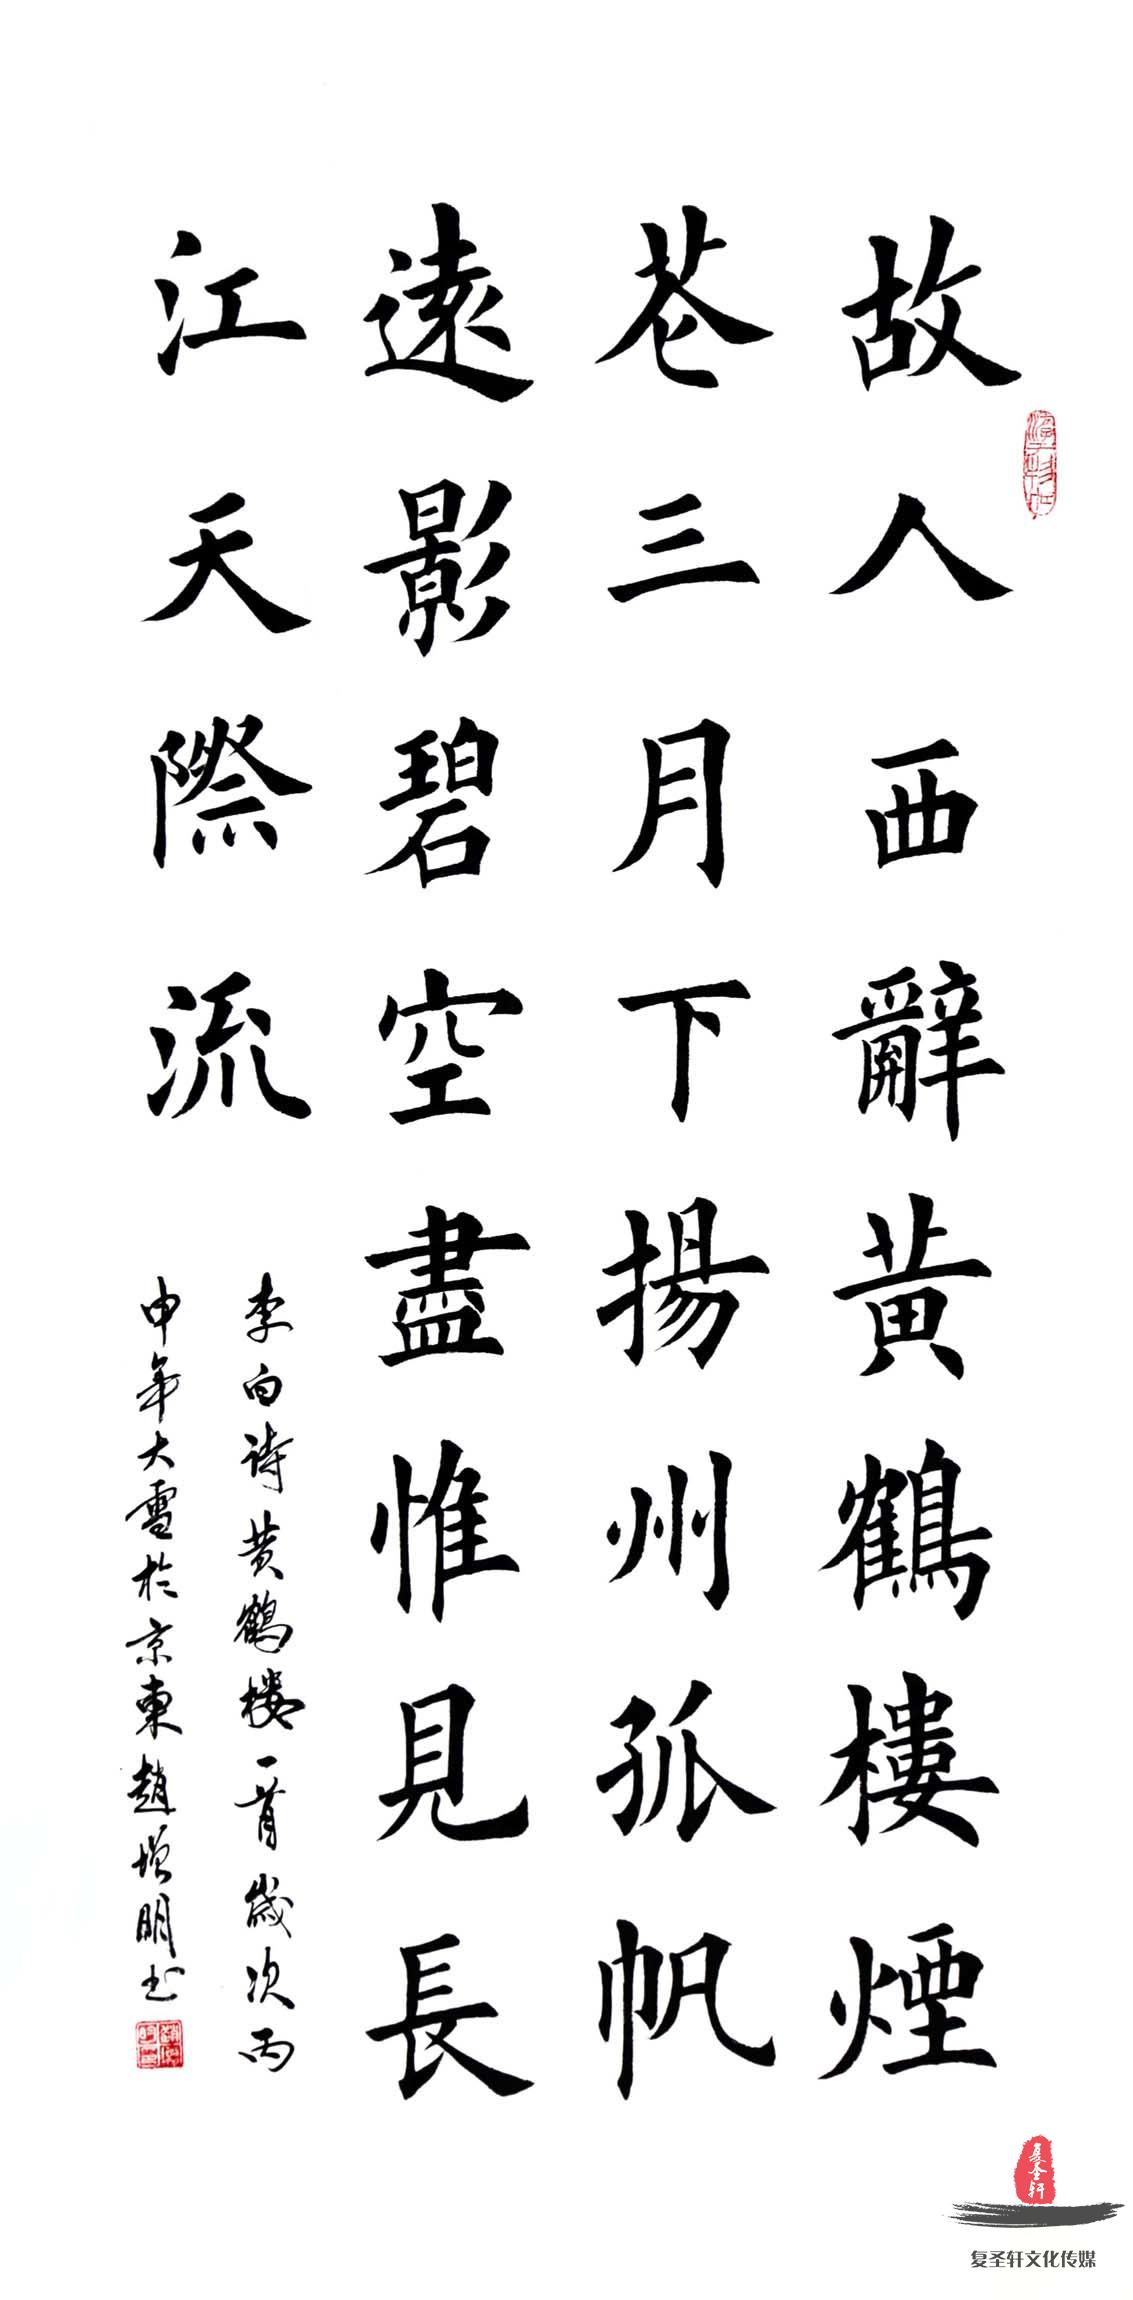 故人西辭黃鶴樓煙
花三月下揚州孤帆
遠影碧空盡惟見長
江天際流
李白诗黄鶴樓一首歲次丙
申年大雪於京東趙增明书
复圣轩
复圣轩文化传媒